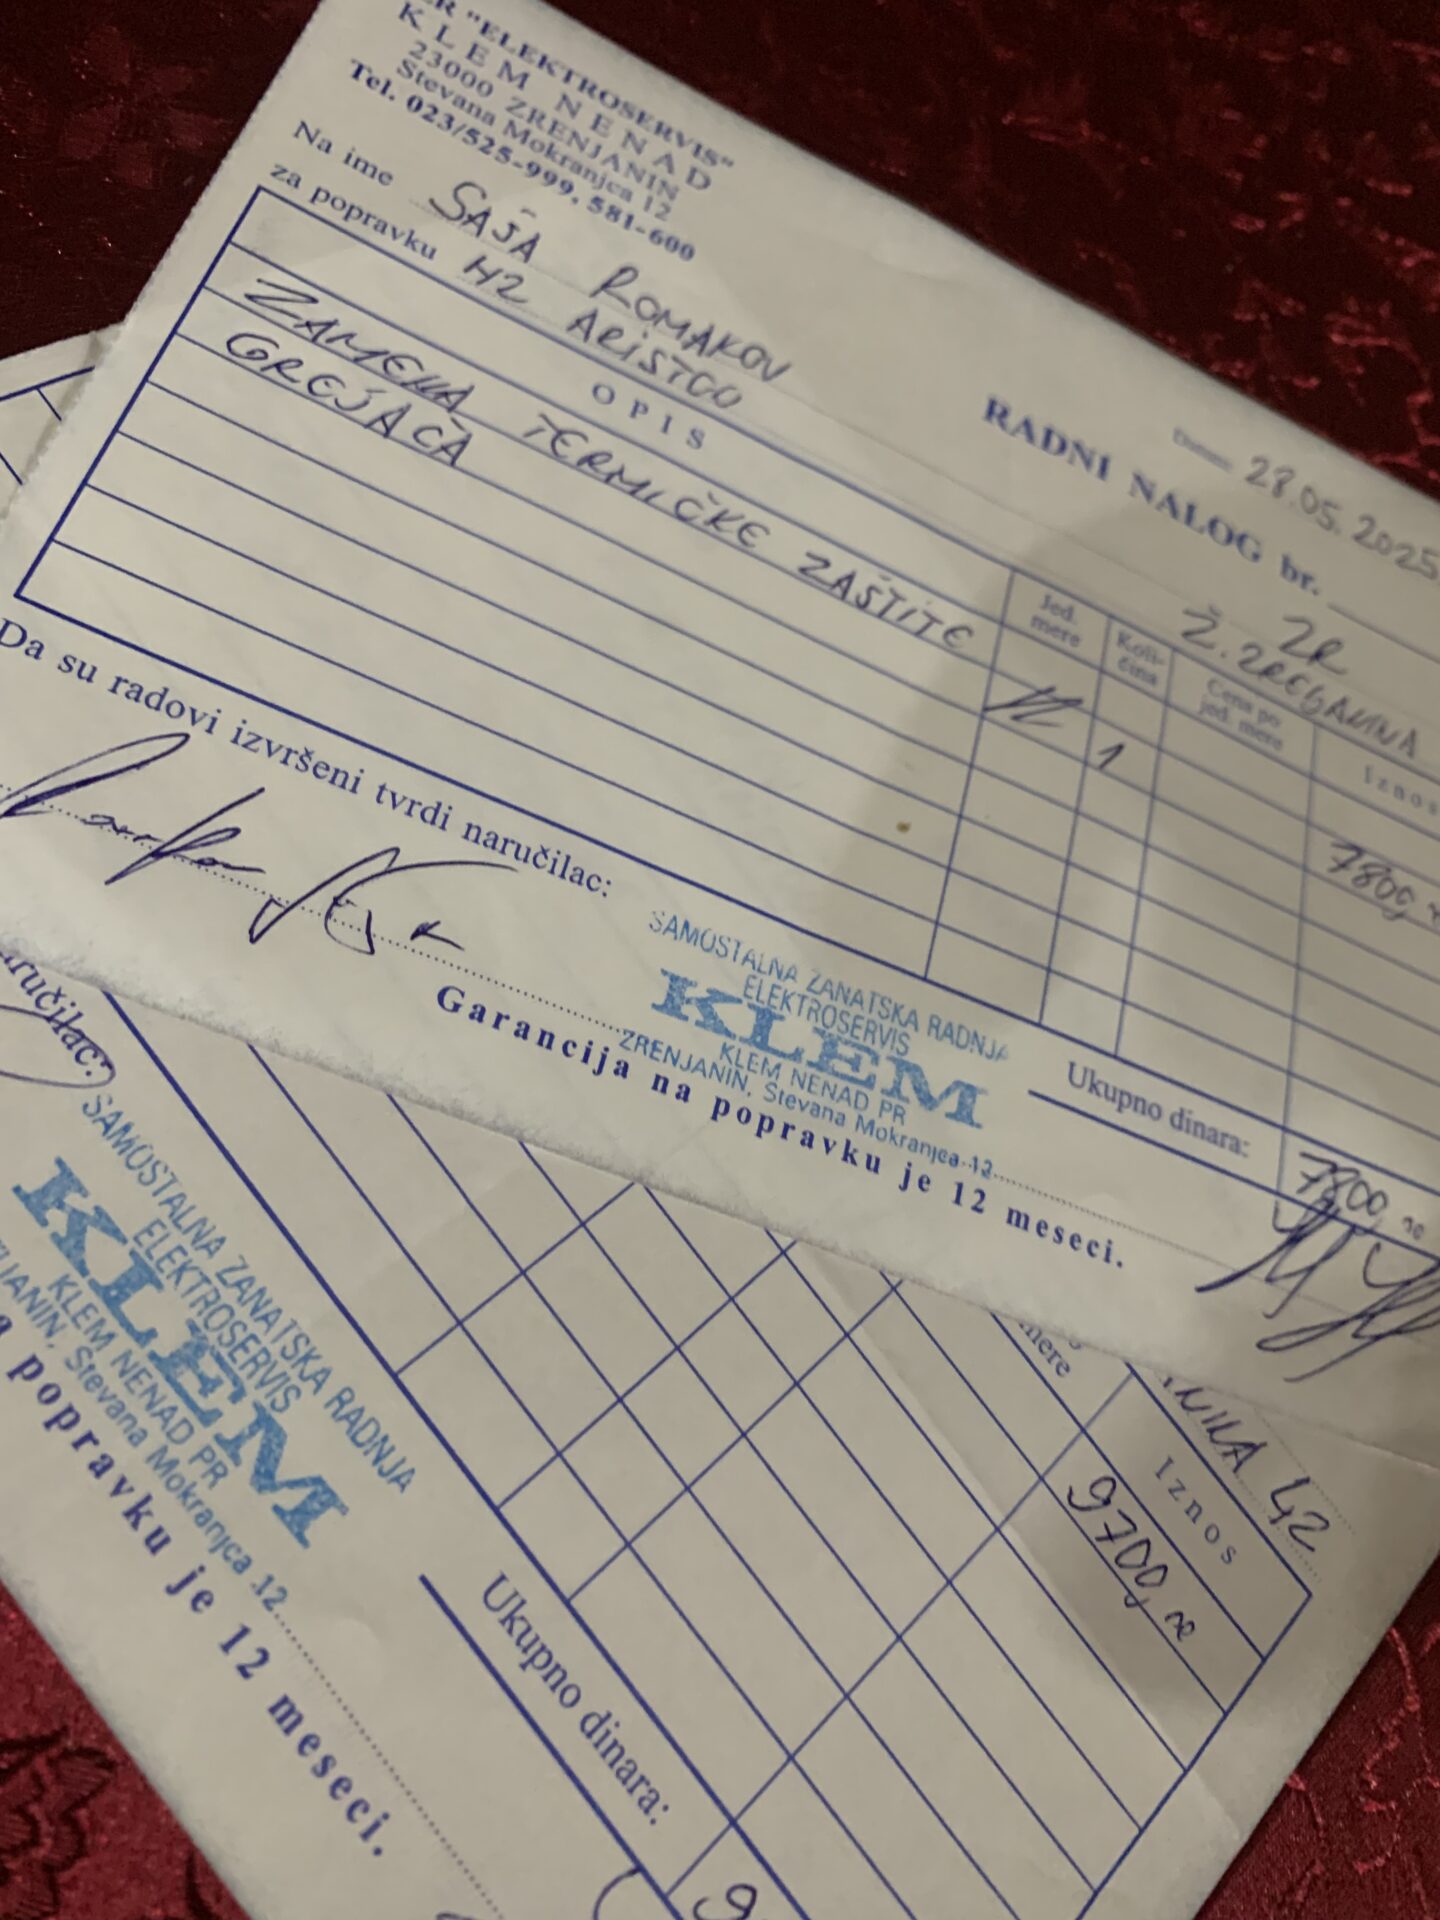 "ELEKTROSERVIS"
KLEM NENAD
23000 ZRENJANIN
Stevana Mokranjca 12
Tel. 023/525-999, 581-600
28.05.2025
RADNI NALOG br.
Na ime SAŠA ROMAKOV ZR
za popravku MZ ARISTOO
OPIS
Jed. mere
Količina
Cena po jed. mere
Iznos
ZAMENA TERMIČKE ZAŠTITE
1
7800,
GREJAČA
Da su radovi izvršeni tvrdi naručilac:
Ukupno dinara:
7800,
SAMOSTALNA ZANATSKA RADNJA
ELEKTROSERVIS
KLEM
KLEM NENAD PR
ZRENJANIN, Stevana Mokranjca 12
Garancija na popravku je 12 meseci.
mere
42
Iznos
9700,
SAMOSTALNA ZANATSKA RADNJA
ELEKTROSERVIS
KLEM
KLEM NENAD PR
Stevana Mokranjca 12
popravku je 12 meseci.
Ukupno dinara:
9